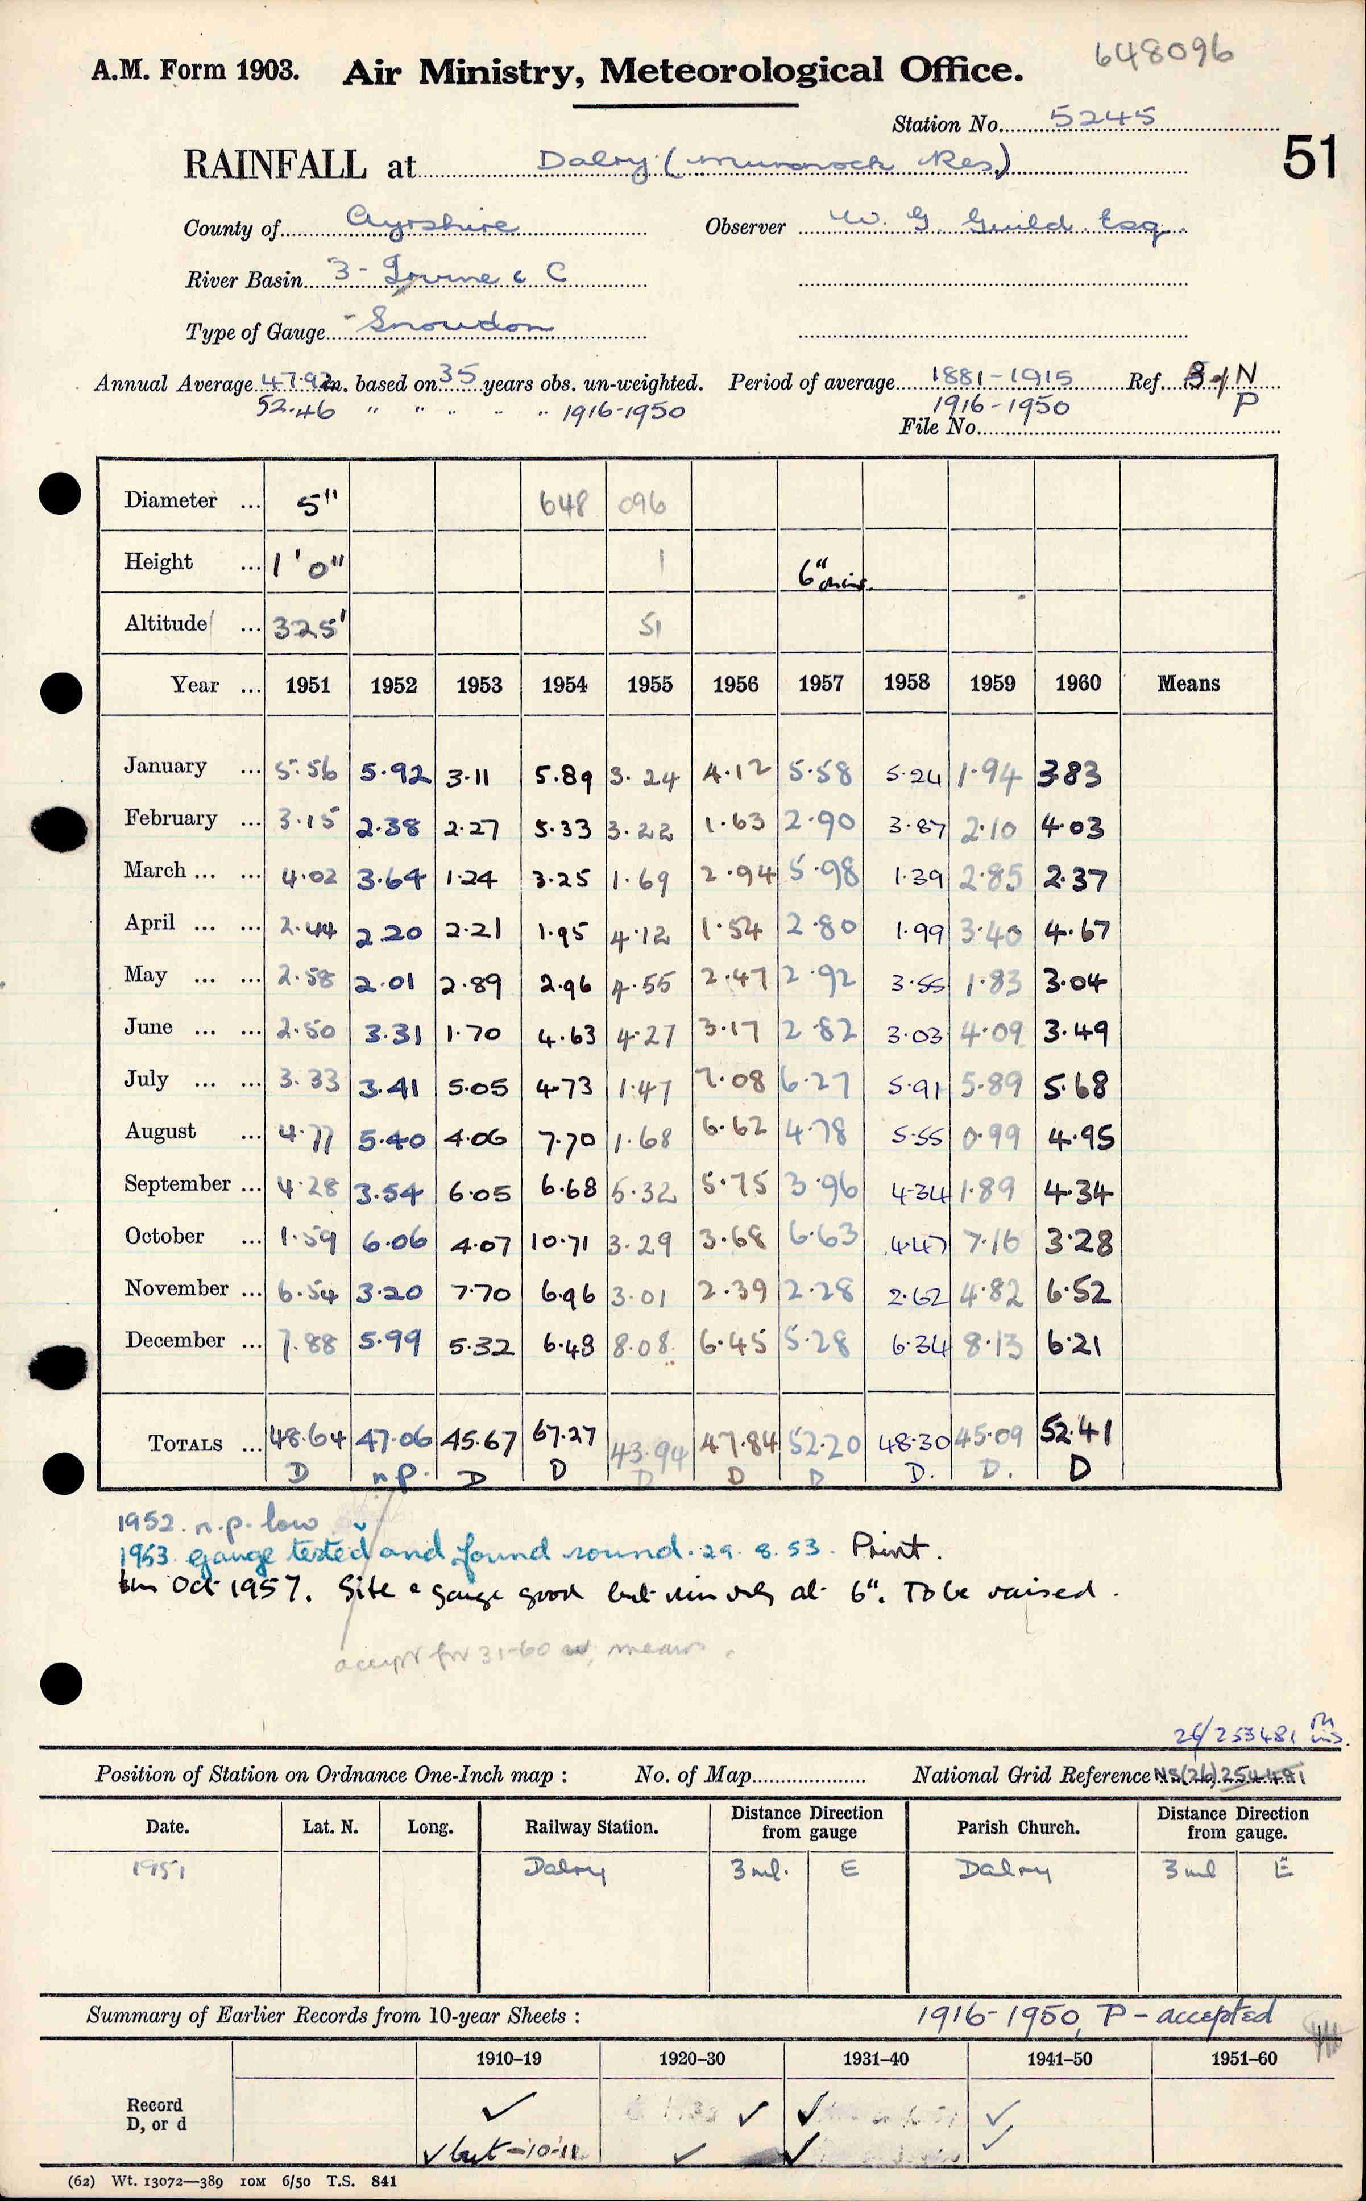 648096
A.M. Form 1903. Air Ministry, Meteorological Office.
Station No. 5245
51
RAINFALL at Dalry (Munnoch Res.)
County of Ayrshire Observer W. G. Guild Esq
River Basin 3 - Irvine & C
Type of Gauge Snowdon
Annual Average 47.92 in. based on 35 years obs. un-weighted. Period of average 1881-1915 Ref. N
52.46 " " " " " 1916-1950 1916-1950 P
File No.
Diameter ... 5" 648 096
Height ... 1'0" 1 6" ins.
Altitude ... 325' 51
Year ... 1951 1952 1953 1954 1955 1956 1957 1958 1959 1960 Means
January ... 5.56 5.92 3.11 5.89 3.24 4.12 5.58 5.24 1.94 3.83
February ... 3.15 2.38 2.27 5.33 3.22 1.63 2.90 3.87 2.10 4.03
March ... ... 4.02 3.64 1.24 3.25 1.69 2.94 5.98 1.39 2.85 2.37
April ... ... 2.44 2.20 2.21 1.95 4.12 1.54 2.80 1.99 3.40 4.67
May ... ... 2.58 2.01 2.89 2.96 4.55 2.47 2.92 3.55 1.83 3.04
June ... ... 2.50 3.31 1.70 4.63 4.27 3.17 2.82 3.03 4.09 3.49
July ... ... 3.33 3.41 5.05 4.73 1.47 7.08 6.27 5.91 5.89 5.68
August ... 4.77 5.40 4.06 7.70 1.68 6.62 4.78 5.55 0.99 4.95
September ... 4.28 3.54 6.05 6.68 5.32 5.75 3.96 4.34 1.89 4.34
October ... 1.59 6.06 4.07 10.71 3.29 3.68 6.63 4.47 7.16 3.28
November ... 6.54 3.20 7.70 6.96 3.01 2.39 2.28 2.62 4.82 6.52
December ... 7.88 5.99 5.32 6.48 8.08 6.45 5.28 6.34 8.13 6.21
Totals ... 48.64 47.06 45.67 67.27 43.94 47.84 52.20 48.30 45.09 52.41
D n.p. D D D D D D. D. D
1952. n.p. low
1953 gauge tested and found sound. 29.8.53. Print.
Oct 1957. Site & gauge good but rim only at 6". To be raised.
accept for 31-60 av, means.
26/253481
Position of Station on Ordnance One-Inch map : No. of Map National Grid Reference NS(26)254481
Date. Lat. N. Long. Railway Station. Distance Direction from gauge Parish Church. Distance Direction from gauge.
1951 Dalry 3 ml. E Dalry 3 ml E
Summary of Earlier Records from 10-year Sheets : 1916-1950, P - accepted
1910–19 1920–30 1931–40 1941–50 1951–60
Record D, or d ✓ ✓ ✓ ✓
✓ but -'10-11 ✓ ✓ ✓
(62) Wt. 13072—389 10M 6/50 T.S. 841